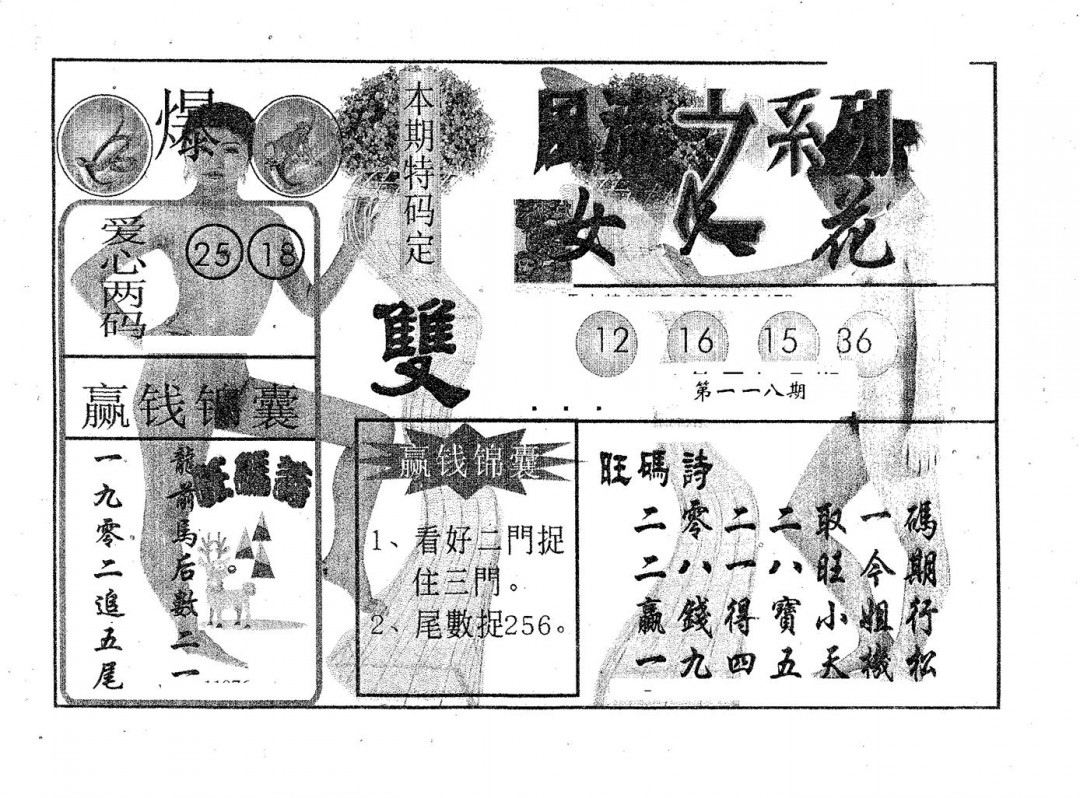 爆
爱心两码
25 18
赢钱锦囊
龍前馬后數二一
一九零二追五尾
本期特码定
雙
赢钱锦囊
1、看好二門捉
住三門。
2、尾數捉256。
之系列
女人花
12 16 15 36
第一一八期
旺碼詩
二零二二取一碼
二八一八旺今期
赢錢得寶小姐行
一九四五天機松